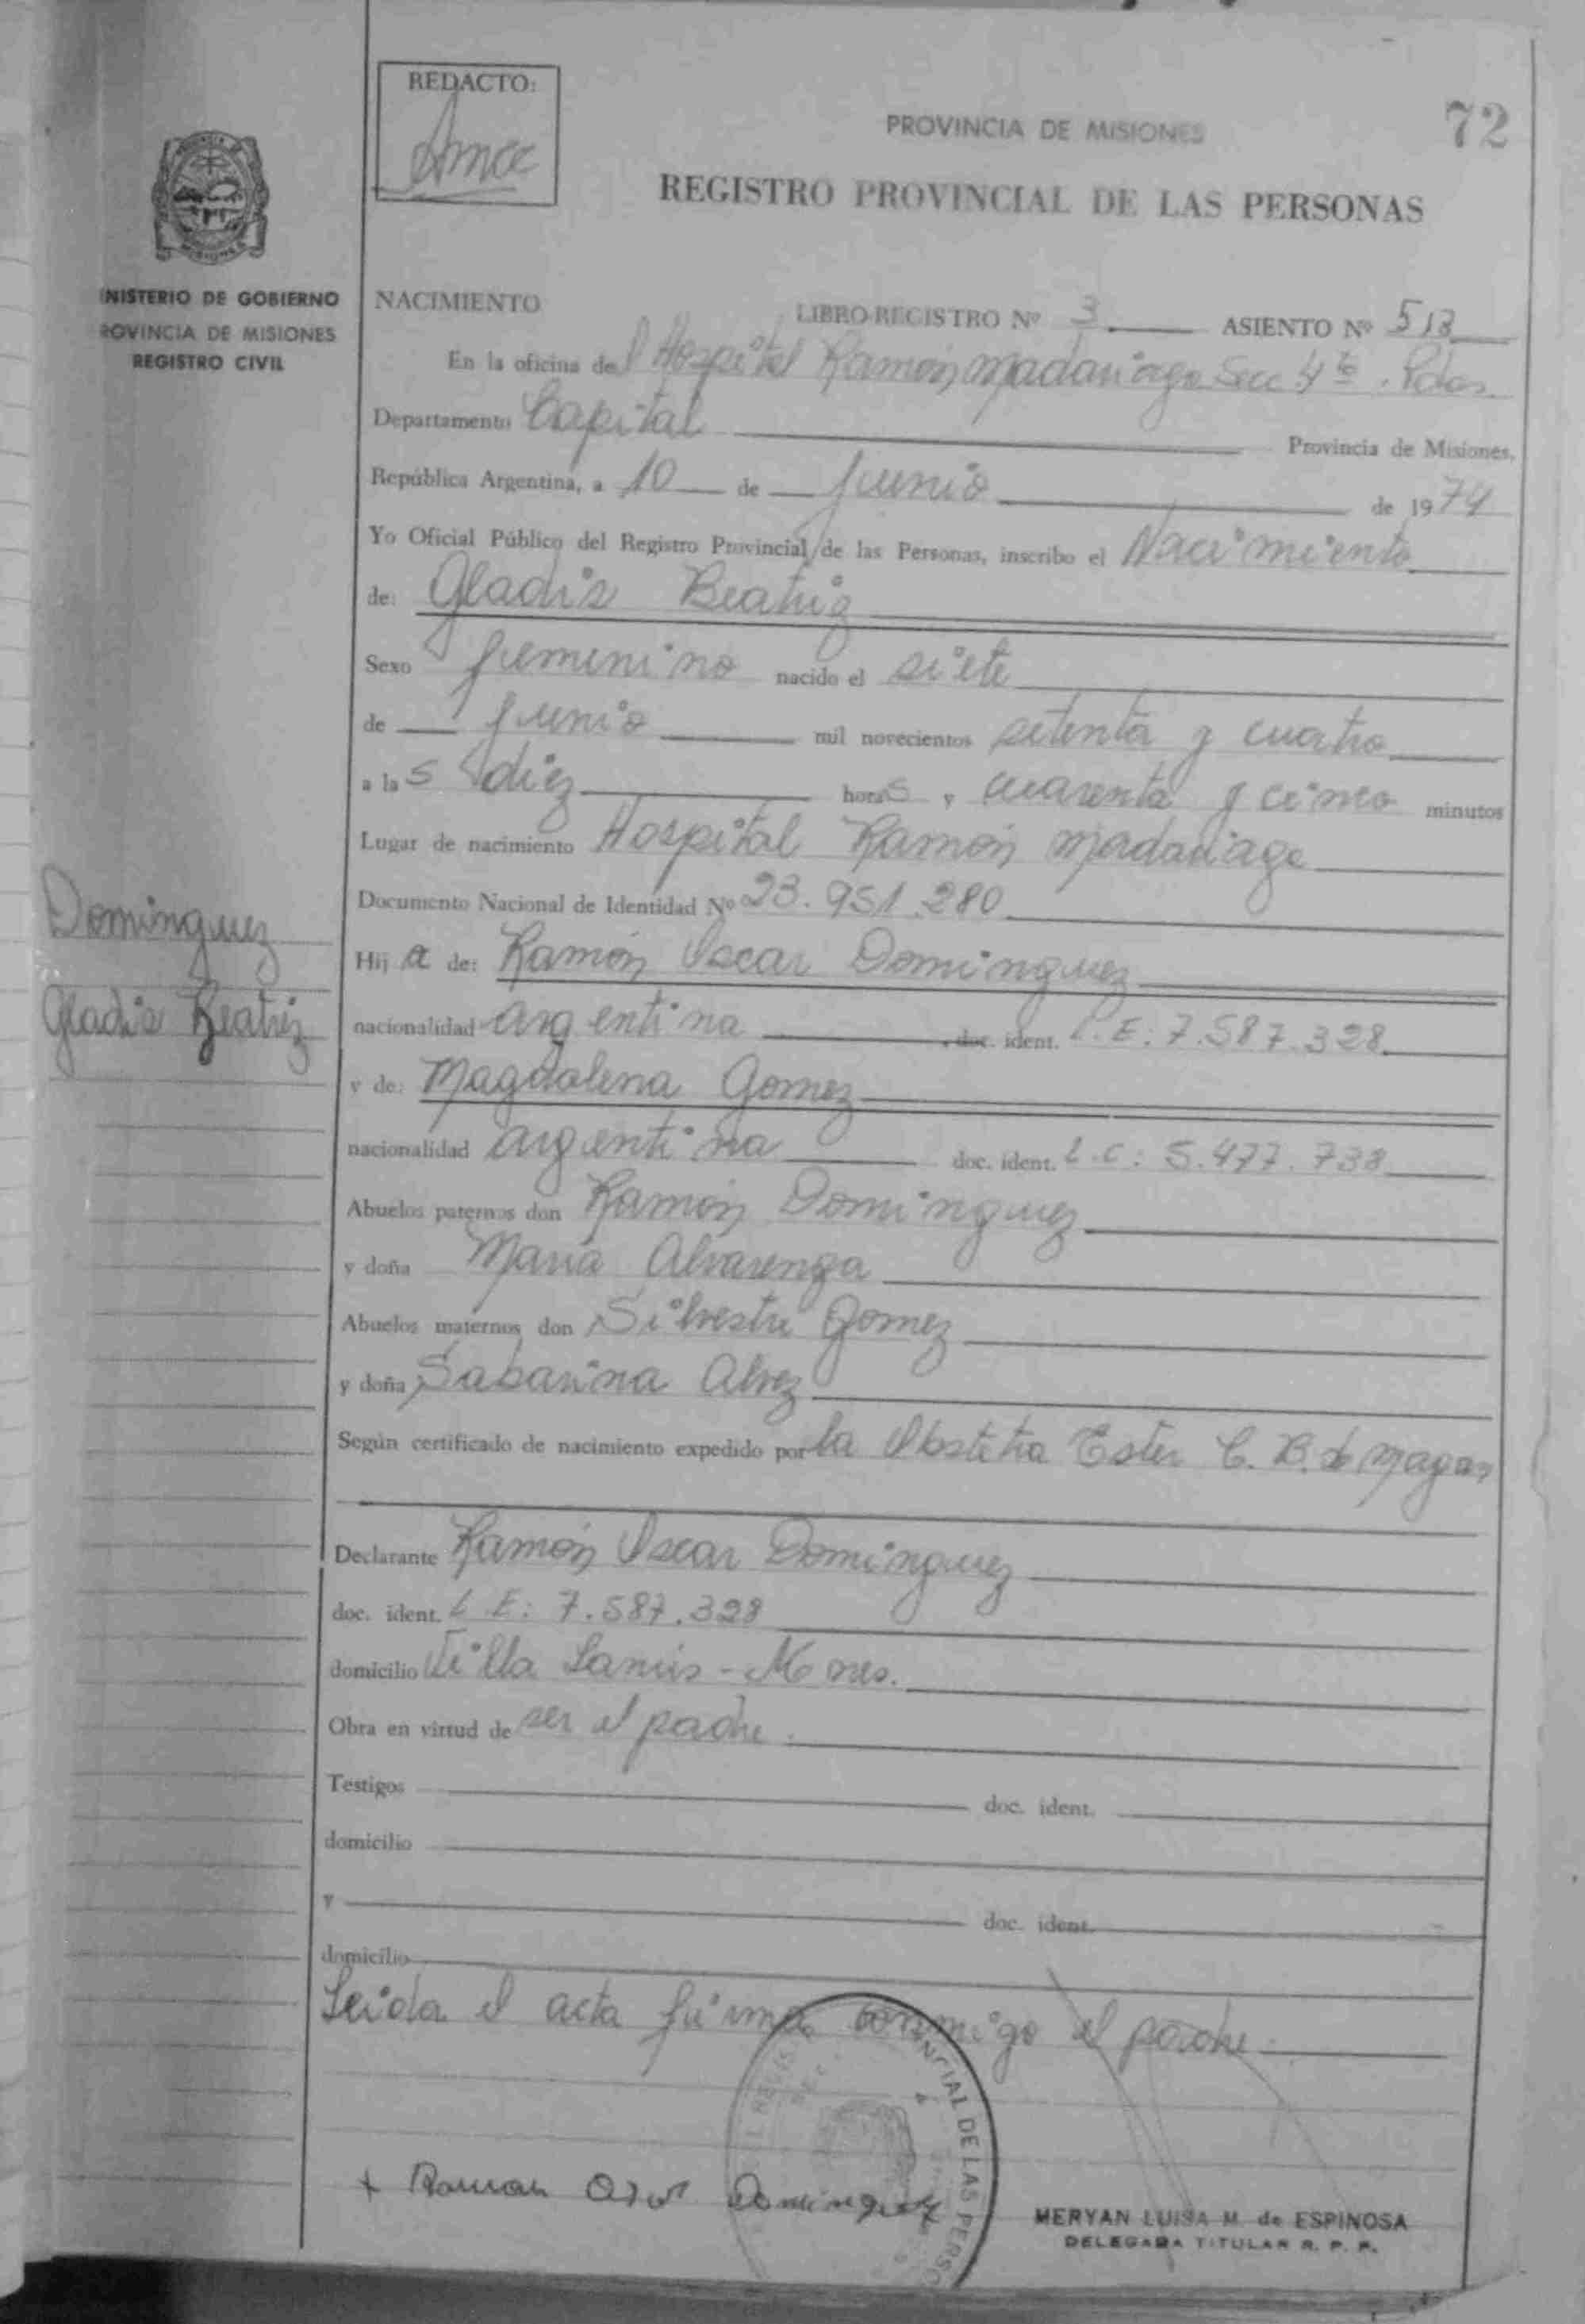 REDACTO:
PROVINCIA DE MISIONES
72
REGISTRO PROVINCIAL DE LAS PERSONAS
MISIONES
INISTERIO DE GOBIERNO
ROVINCIA DE MISIONES
REGISTRO CIVIL
NACIMIENTO LIBRO-REGISTRO Nº 3 ASIENTO Nº 513
En la oficina del Hospital Ramón Madariaga Secc 4ta. Pdas.
Departamento Capital Provincia de Misiones,
República Argentina, a 10 de Junio de 1974
Yo Oficial Público del Registro Provincial de las Personas, inscribo el Nacimiento
de: Gladis Beatriz
Sexo femenino nacido el siete
de Junio mil novecientos setenta y cuatro
a las diez horas y cuarenta y cinco minutos
Lugar de nacimiento Hospital Ramón Madariaga
Documento Nacional de Identidad Nº 23.951.280
Dominguez
Gladis Beatriz
Hija de: Ramón Oscar Dominguez
nacionalidad argentina doc. ident. L.E: 7.587.328
y de: Magdalena Gomez
nacionalidad argentina doc. ident. L.C: 5.477.738
Abuelos paternos don Ramón Dominguez
y doña Maria Alvarenga
Abuelos maternos don Silvestre Gomez
y doña Sabarina Alvez
Según certificado de nacimiento expedido por la Obstetra Ester C. B. de Magan
Declarante Ramón Oscar Dominguez
doc. ident. L E: 7.587.328
domicilio Villa Lanús - Mnes.
Obra en virtud de ser el padre.
Testigos doc. ident.
domicilio
y doc. ident.
domicilio
Leida el acta firma conmigo el padre
+ Raman Dominguez
NCIAL DE LAS PERSO
MERYAN LUISA M. de ESPINOSA
DELEGADA TITULAR R. P. P.